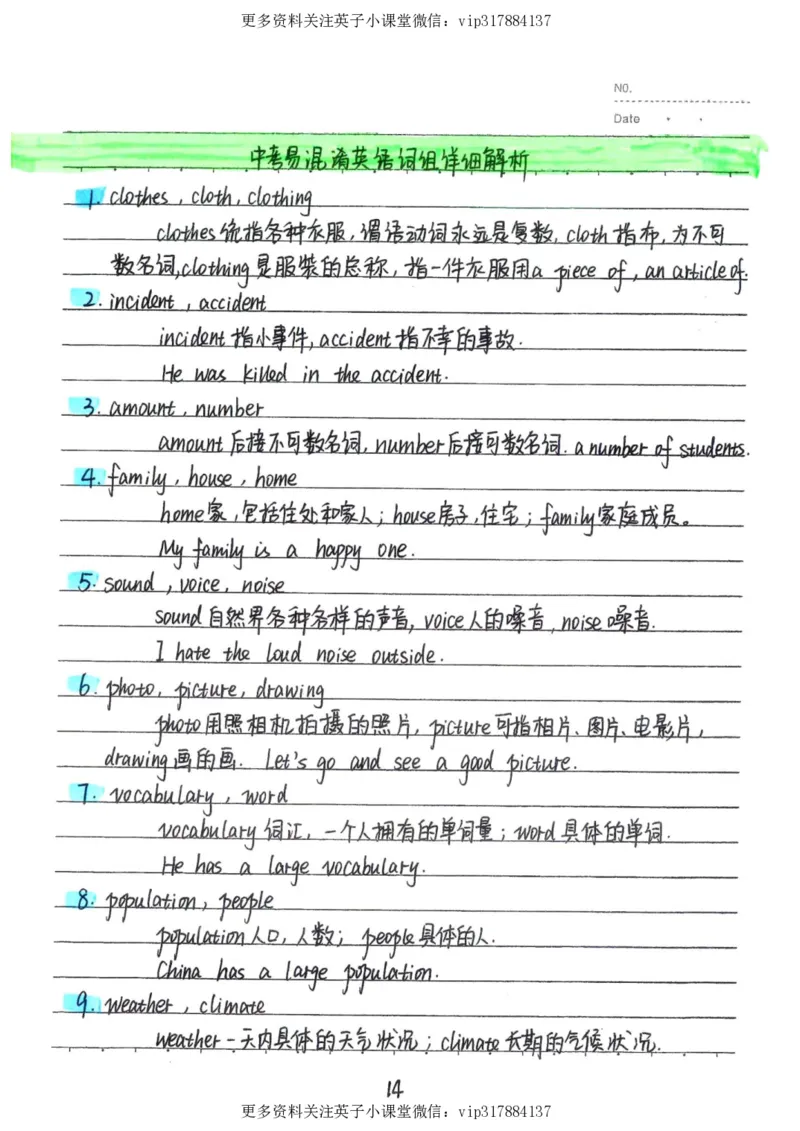 更多资料关注英子小课堂微信：vip317884137
NO.
Date
中考易混淆英语词组详细解析
1. clothes , cloth , clothing
clothes统指各种衣服，谓语动词永远是复数，cloth指布，为不可
数名词,clothing是服装的总称，指一件衣服用a piece of , an article of.
2. incident , accident
incident指小事件, accident指不幸的事故.
He was killed in the accident.
3. amount , number
amount后接不可数名词, number后接可数名词. a number of students.
4. family , house , home
home家,包括住处和家人；house房子,住宅；family家庭成员。
My family is a happy one.
5. sound , voice , noise
sound自然界各种各样的声音, voice人的嗓音, noise噪音.
I hate the loud noise outside.
6. photo, picture, drawing
photo用照相机拍摄的照片, picture可指相片、图片、电影片,
drawing画的画. Let's go and see a good picture.
7. vocabulary , word
vocabulary词汇, 一个人拥有的单词量；word具体的单词.
He has a large vocabulary.
8. population, people
population人口, 人数； people具体的人.
China has a large population.
9. weather , climate
weather一天内具体的天气状况；climate长期的气候状况.
14
更多资料关注英子小课堂微信：vip317884137